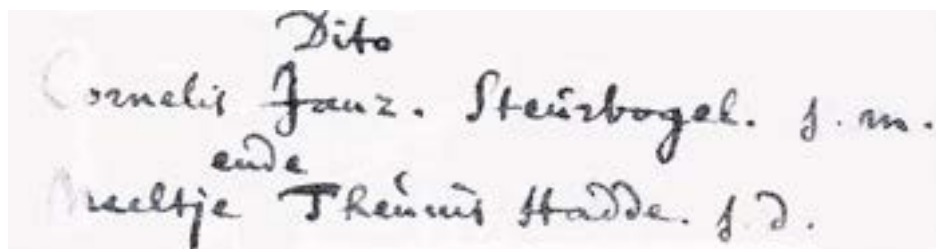 Dito
Cornelis Janz. Steürbogel. j. m.
ende
Neeltje Theünis Hadde. j. d.